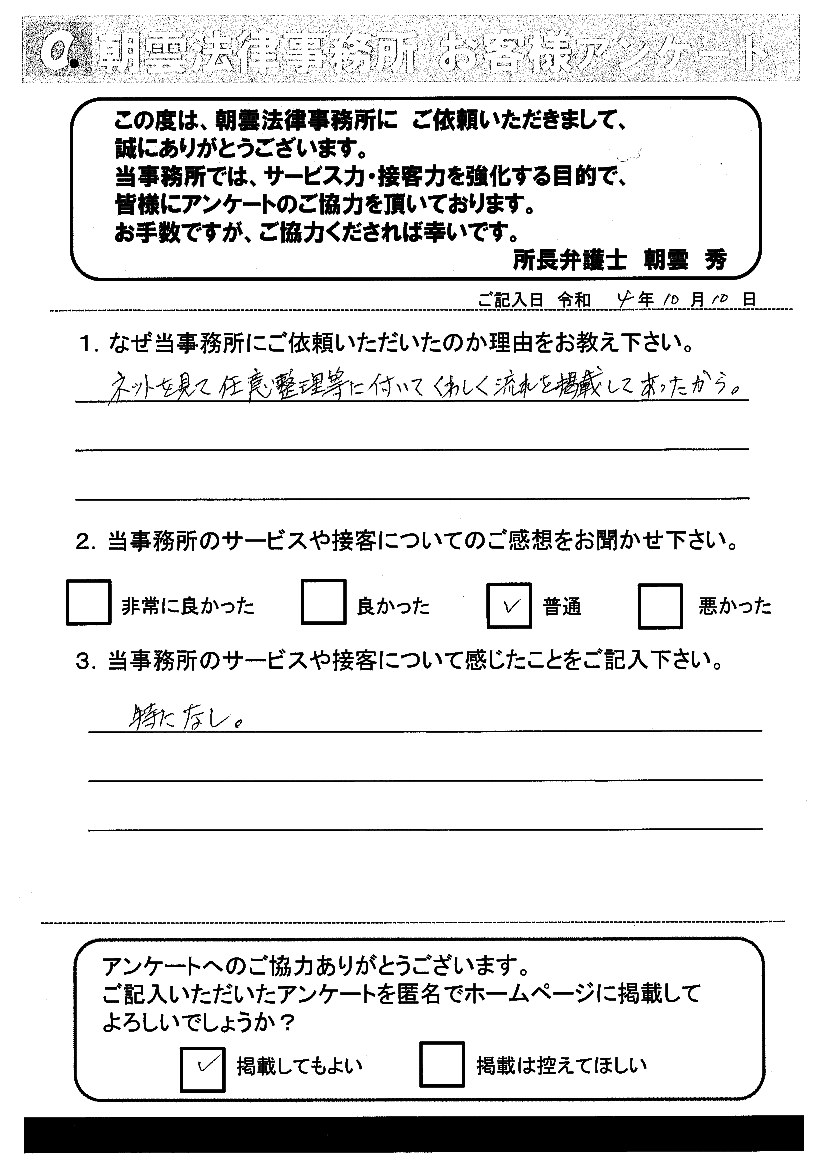 朝雲法律事務所 お客様アンケート
この度は、朝雲法律事務所に ご依頼いただきまして、
誠にありがとうございます。
当事務所では、サービス力・接客力を強化する目的で、
皆様にアンケートのご協力を頂いております。
お手数ですが、ご協力くだされば幸いです。
所長弁護士 朝雲 秀
ご記入日 令和 4年10月10日
1. なぜ当事務所にご依頼いただいたのか理由をお教え下さい。
ネットを見て任意整理等に付いてくわしく流れを掲載してあったから。
2. 当事務所のサービスや接客についてのご感想をお聞かせ下さい。
非常に良かった 良かった ✓ 普通 悪かった
3. 当事務所のサービスや接客について感じたことをご記入下さい。
特になし。
アンケートへのご協力ありがとうございます。
ご記入いただいたアンケートを匿名でホームページに掲載して
よろしいでしょうか？
✓ 掲載してもよい 掲載は控えてほしい